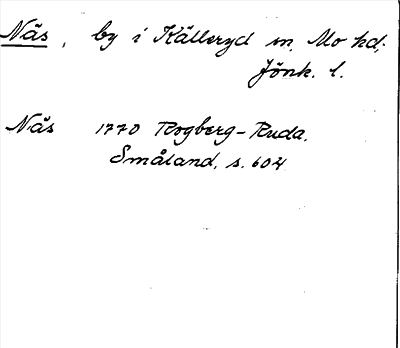 Näs, by i Källeryd sn, Mo hd,
Jönk. l.
Näs 1770 Rogberg-Ruda.
Småland, s. 604